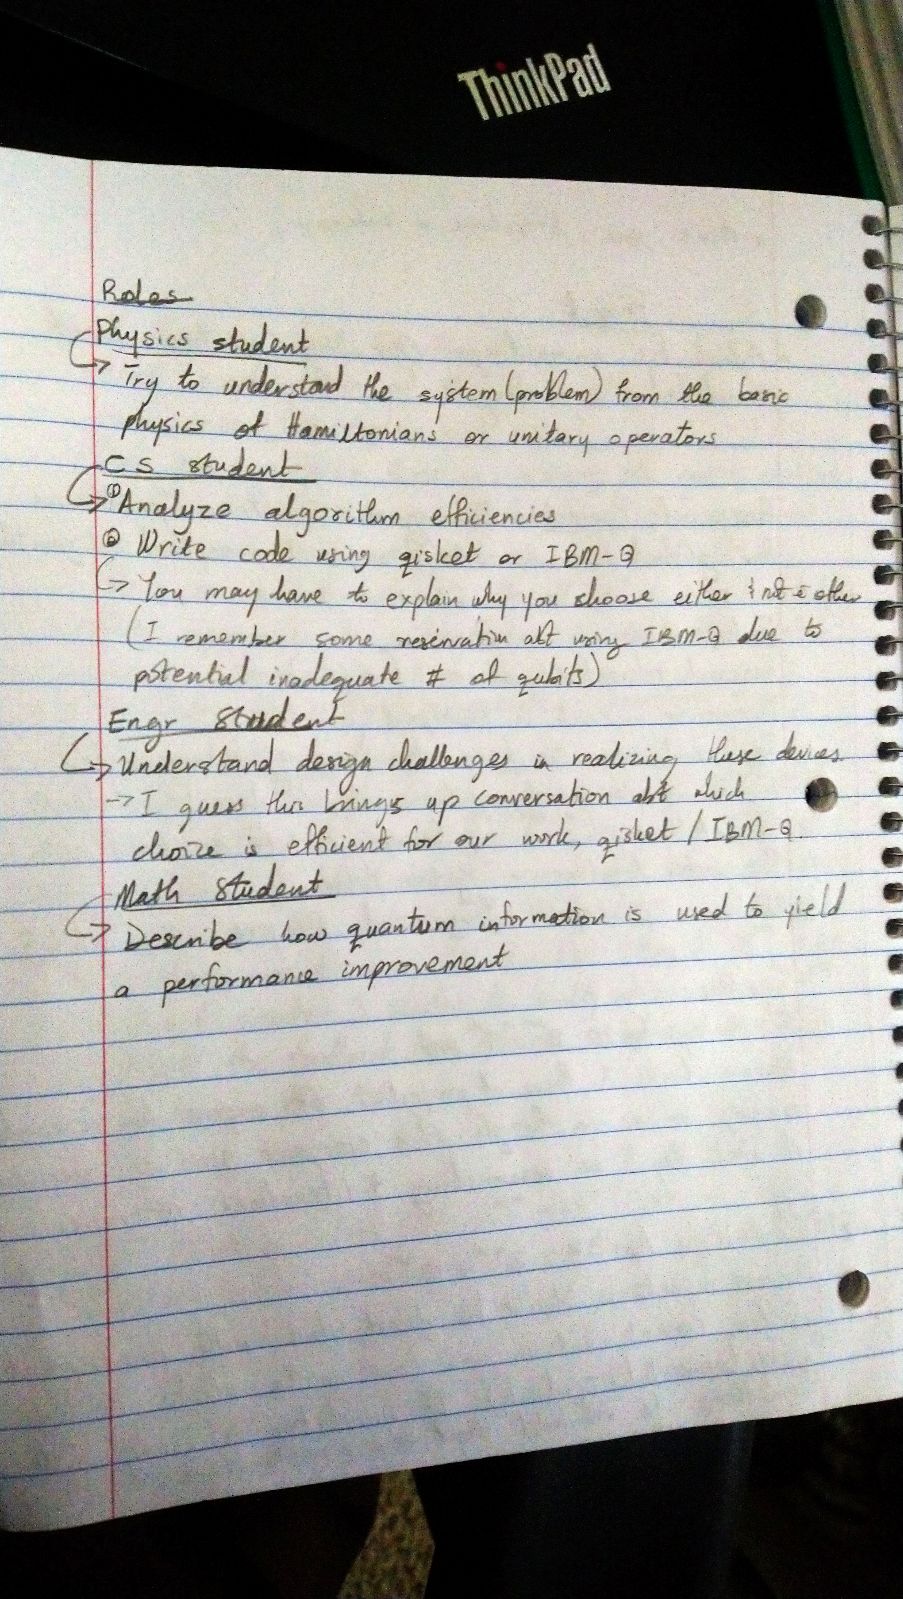 ThinkPad
Roles
Physics student
Try to understand the system (problem) from the basic
physics of Hamiltonians or unitary operators
CS student
① Analyze algorithm efficiencies
② Write code using qisket or IBM-Q
→ You may have to explain why you choose either & not other
(I remember some reservation abt using IBM-Q due to
potential inadequate # of qubits)
Engr Student
Understand design challenges in realizing these devices
→ I guess this brings up conversation abt which
choice is efficient for our work, qisket / IBM-Q.
Math Student
Describe how quantum information is used to yield
a performance improvement